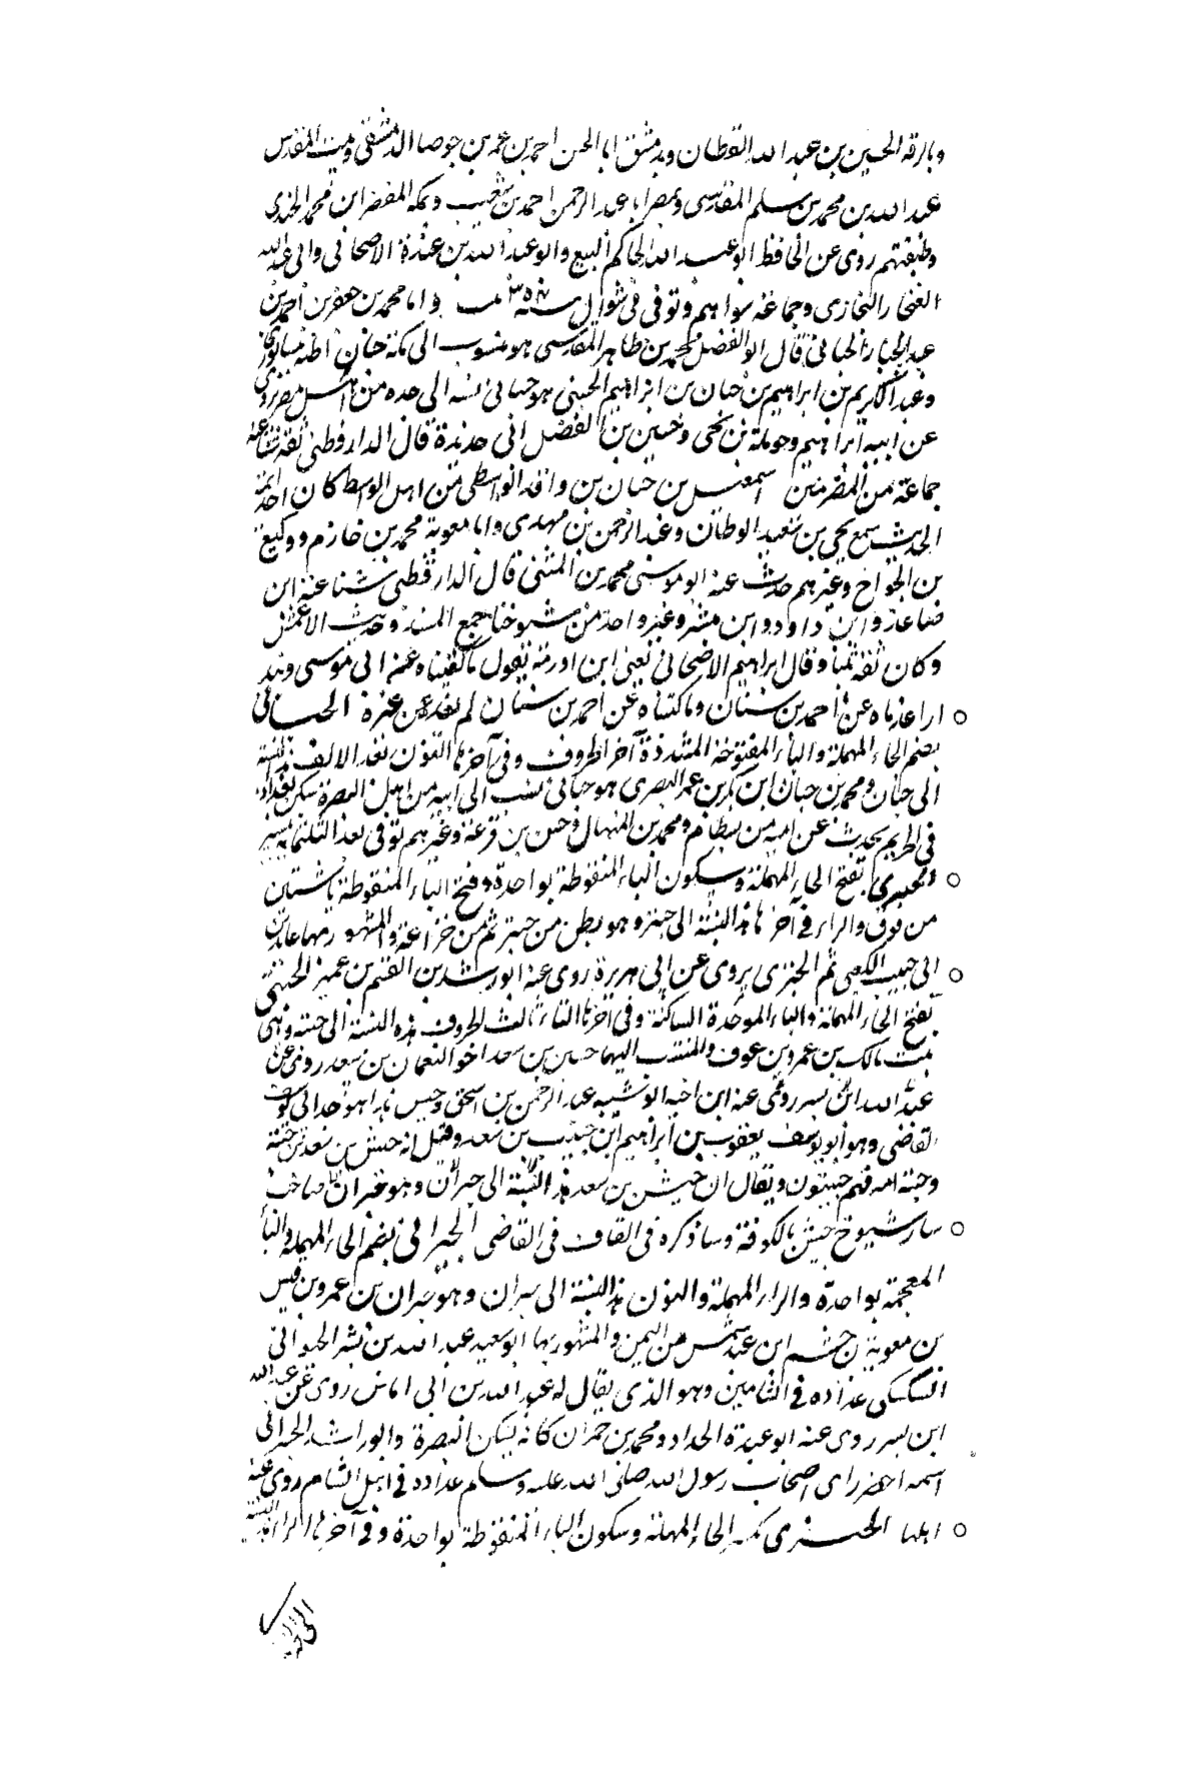 وبالرقة الحسين بن عبد الله القطان وبدمشق ابا الحسن احمد بن عمير بن جوصا الدمشقي وببيت المقدس
عبد الله بن محمد بن سلم المقدسي وبمصر ابا عبد الرحمن احمد بن شعيب وبمكه المفضل بن محمد الجندي
وطبقتهم روى عن الحافظ ابو عبد الله الحاكم البيع وابو عبد الله بن مندة الاصبهاني وابي عبد الله
الغنجار البخاري وجماعة سواهم وتوفي في شوال سنة ٣٥٤ واما محمد بن جعفر بن احمد بن
عبد الجبار الحياني قال ابو الفضل محمد بن طاهر المقدسي هو منسوب الى سكة حيان اظنه نيسابوري
وعبد الكريم بن ابراهيم بن حبان بن ابراهيم الحبني هو حباني نسبه الى جده من اهل مصر روى
عن ابيه ابراهيم وحرملة بن يحيى وحسين بن الفضل ابي حديدة قال الدارقطني ثقة ثنا عنه
جماعة من المصريين اسمعيل بن حبان بن واقد الواسطي من اهل الواسط كان احد ائمة
الحديث سمع يحيى بن سعيد القطان وعبد الرحمن بن مهدي وابا معوية محمد بن خازم ووكيع
بن الجراح وغيرهم حدث عنه ابو موسى محمد بن المثنى قال الدارقطني ثنا عنه ابن
صاعد وابن داود وابن مبشر وغير واحد من شيوخنا جمع المسند وحديث الاعمش
وكان ثقة ثبتا وقال ابراهيم الاصبهاني يعني ابن اورمة يقول ما كتبناه عن ابي موسى وبندار
اعدناه عن احمد بن سنان وما كتبناه عن احمد بن سنان لم نعده عن غيره الحباني
بضم الحاء المهملة والباء المفتوحة المشددة آخر الحروف وفي آخرها النون بعد الالف هذه النسبة
الى حبان ومحمد بن حبان ابن بكر بن عمر البصري هو حباني نسب الى ابيه من اهل البصرة سكن بغداد
في المخرم يحدث عن امية بن بسطام ومحمد بن المنهال وحسن بن قزعة وغيرهم توفي بعد الثلثماية بيسير
الحبتري بفتح الحاء المهملة وسكون الباء المنقوطة بواحدة وفتح التاء المنقوطة باثنتين
من فوق والراء في آخرها هذا النسبة الى حبتر وهو بطن من حبتر ثم من خزاعة والمشهور بها عابد بن
ابي حبيب الكعبي ثم الحبتري يروي عن ابي هريرة روى عنه ابو رشدين القثم بن عمير الحبتي
بفتح الحاء المهملة والباء الموحدة الساكنة وفي آخرها التاء ثالث الحروف هذه النسبة الى حبتة وهي
بنت مالك بن عمرو بن عوف والمنتسب اليها حبيش بن سعد اخو النعمان بن سعد روى عن
عبد الله ابن بسر روى عنه ابن اخيه ابو شيبة عبد الرحمن بن اسحق وحبيش هذا هو جد ابي يوسف
القاضي وهو ابو يوسف يعقوب بن ابراهيم ابن حبيب بن سعد وقيل انه حبيش بن سعد بن حبتة
وحبتة امه فهم حبتيون ويقال ان حبيش بن سعد هذا النسبة الى حبران وهو غير ان صاحب
شارسوخ حبيش بالكوفة وسا ذكره في القاف في القاضي الحبراني بضم الحاء المهملة والباء
المعجمة بواحدة والراء المهملة والنون هذا النسبة الى حبران وهو حبران بن عمرو بن قيس
بن معوية بن جشم ابن عبد شمس من اليمن والمشهور بها ابو سعيد عبد الله بن بشر الحبراني
السكسكي عداده في الشاميين وهو الذي يقال له عبد الله بن ابي اماس روى عن عبد الله
ابن بسر روى عنه ابو عبيدة الحداد ومحمد بن حمران كانه يسكن البصرة وابو راشد الحبراني
اسمه اخضر راى اصحاب رسول الله صلى الله عليه وسلم عداده في اهل الشام روى عنه
اهلها الحبري بكسر الحاء المهملة وسكون الباء المنقوطة بواحدة وفي آخرها الراء هذه النسبة